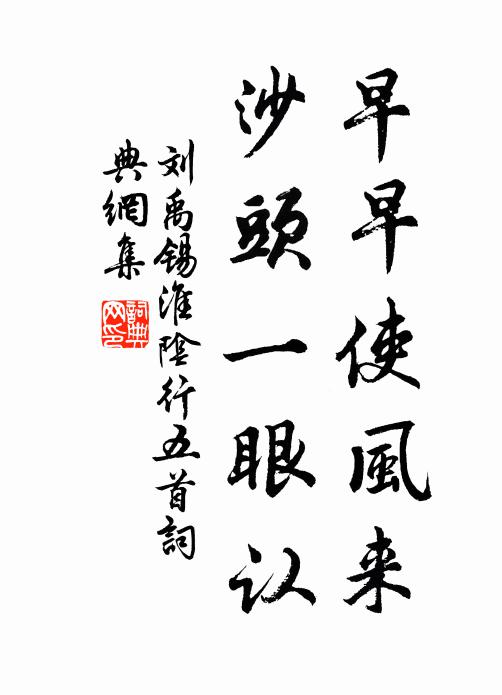 早早使風来
沙頭一眼认
刘禹锡淮陰行五首詞
典網集
詞典
网印